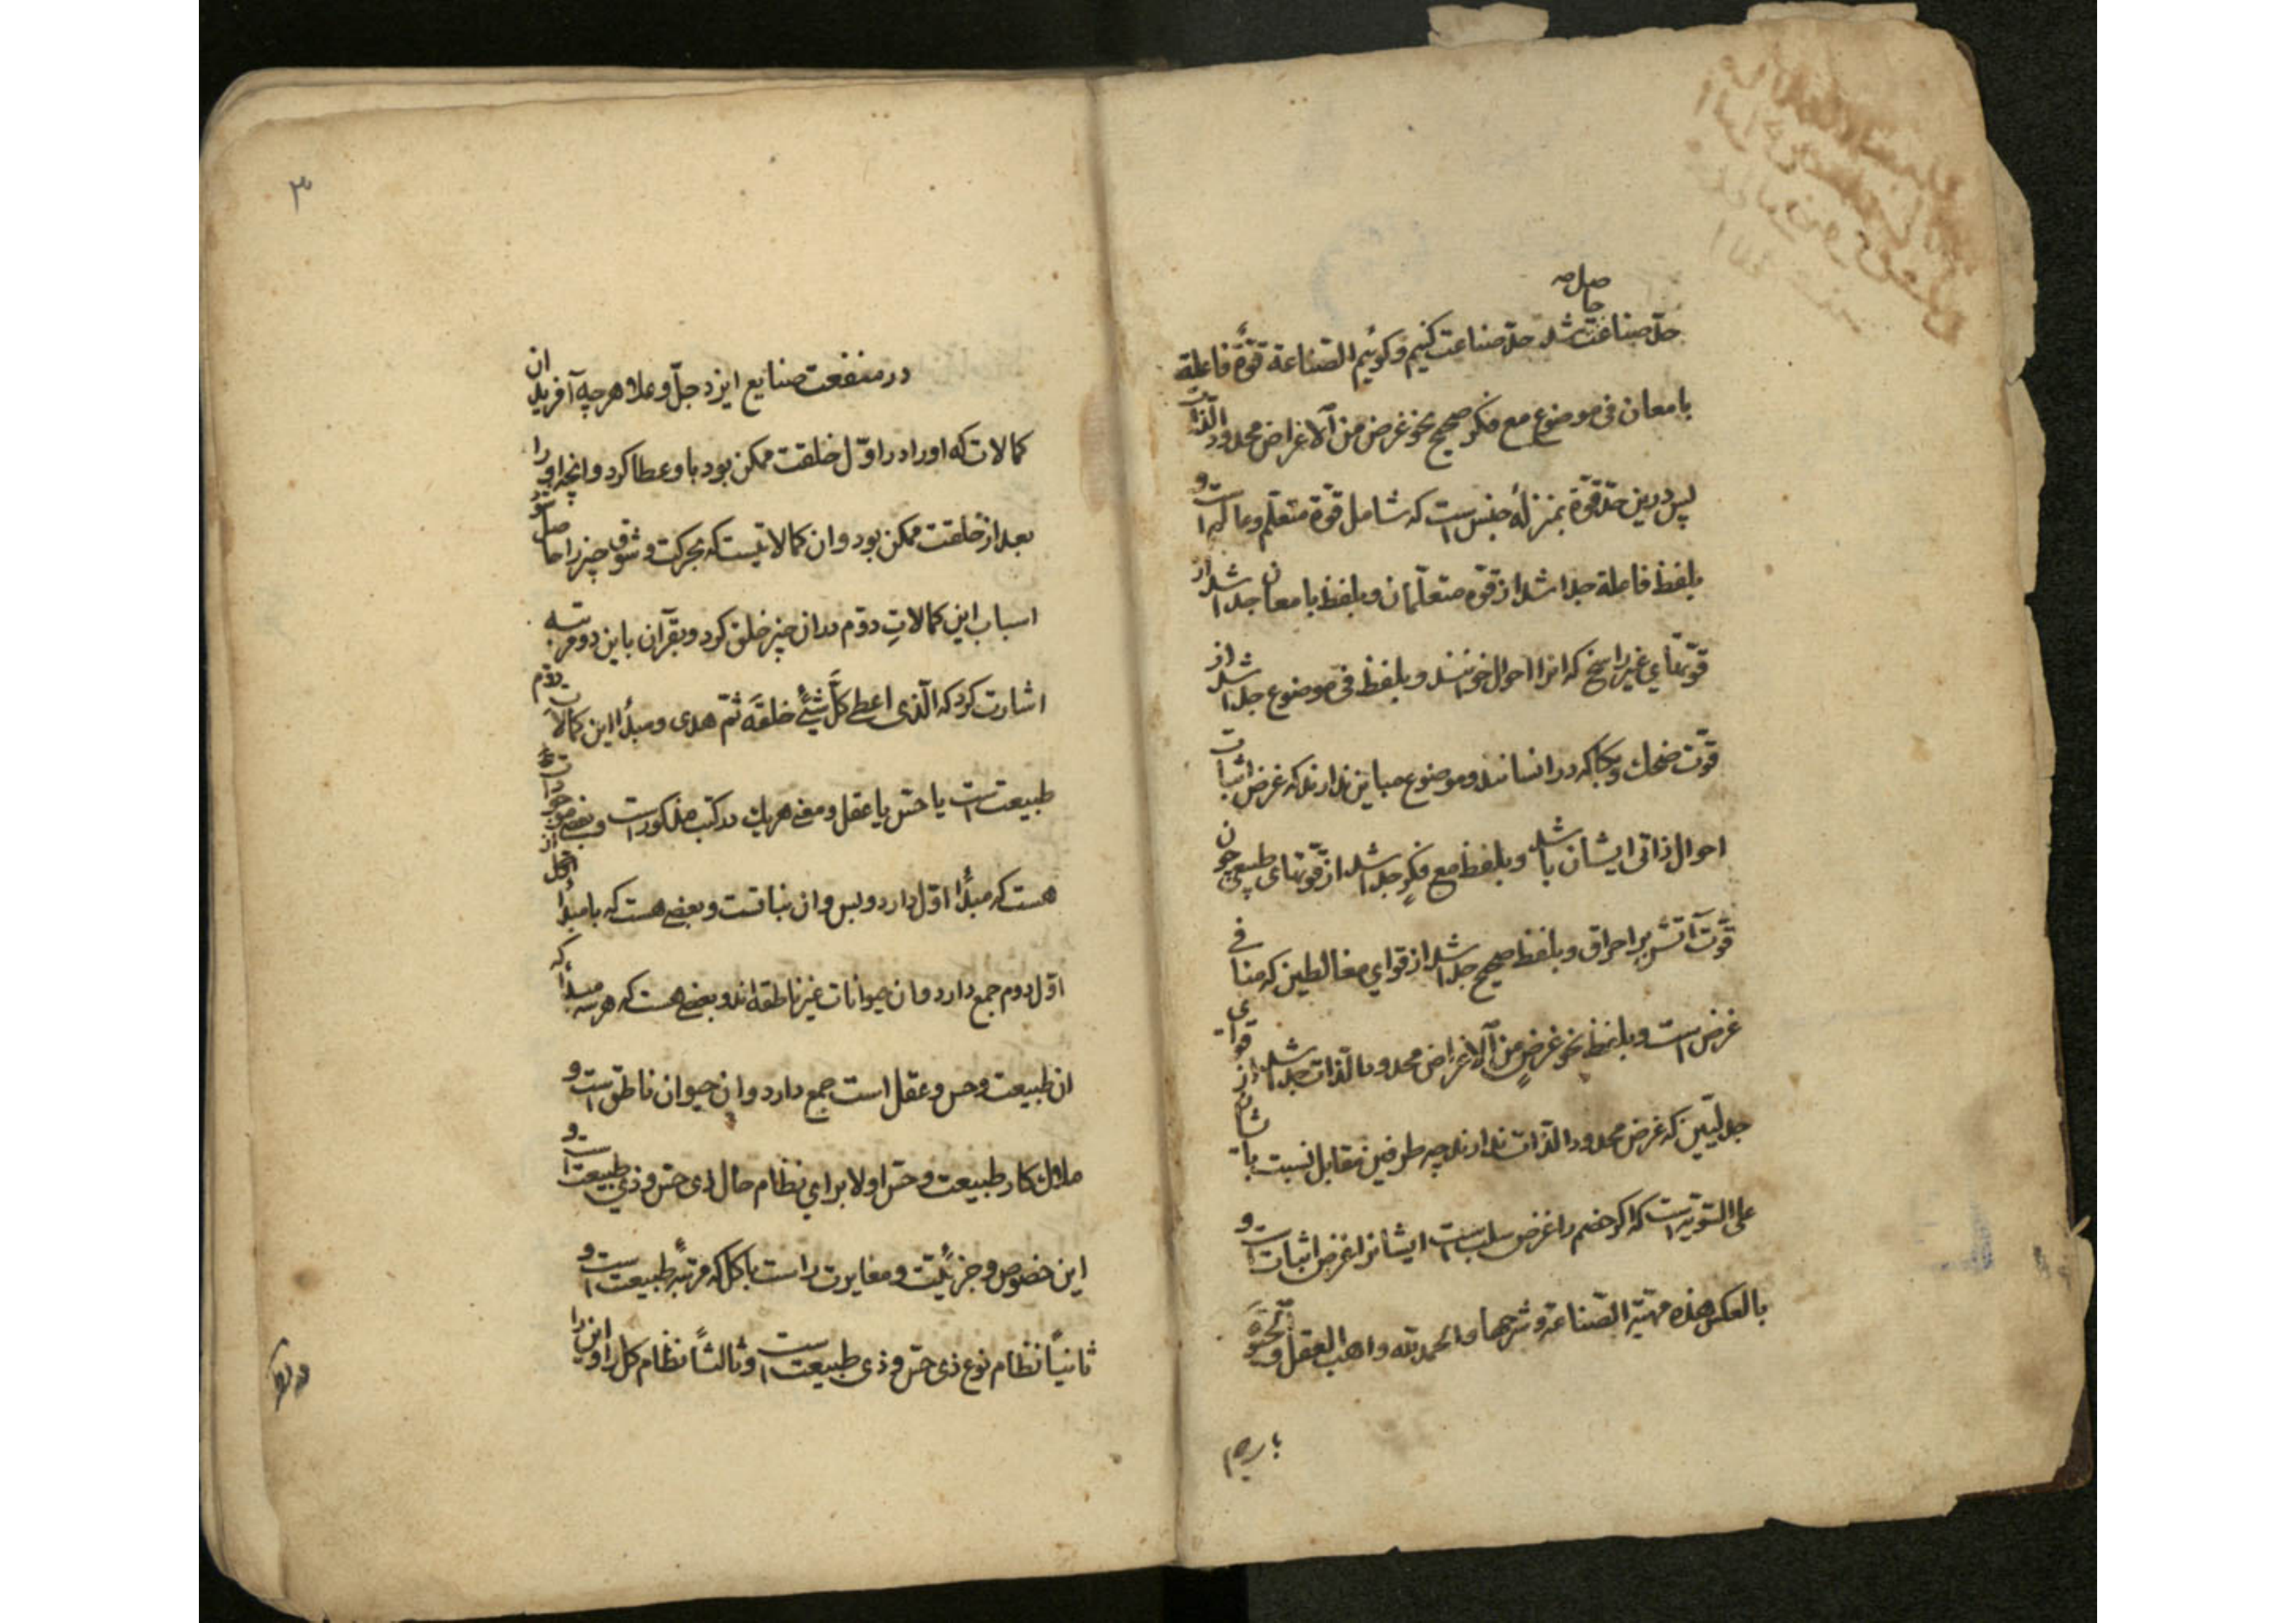 حاصل
حدّ صناعت شد حدّ صناعت کنیم و کوئیم الصّناعة قوّة فاعلة
بامعان فی موضوع مع فکر صحیح نحو غرض من الاغراض محدود الذّات
پس درین حدّ قوّة بمنزلهٔ جنس است که شامل قوّة متعلّم و است و
بلفظ فاعلة جدا شد از قوّه متعلّمان و بلفظ بامعان جدا شد از
قوّتهای غیر راسخ که انرا احوال خوانند و بلفظ فی موضوع جدا شد از
قوّت ضحک و بکا که در انسانند و موضوع مباین ندارند که غرض اثبات
احوال ذاتی ایشان باشد و بلفظ مع فکرٍ جدا شد از قوّتهای طبیعی چون
قوّت آتش بر احراق و بلفظ صحیح جدا شد از قوای مغالطین که منافی
غرض است و بلفظ نحو غرضٍ من الاغراض محدود الذّات جدا شد از قوای
جدلیّین که غرض محدود الذّات ندارند چه طرفین مقابل نسبت باایشان
علی السّویّه است که اکر خصم را غرض سلب است ایشانرا غرض اثبات است و
بالعکس هذه مهیّة الصّناعة و شرحها و الحمد لله واهب العقل و
باب دوم
۳
در منفعت صنایع ایزد جلّ و علا هر چه آفرید ان
کمالات که اورا در اوّل خلقت ممکن بود باو عطا کرد و انچه او را
بعد از خلقت ممکن بود و ان کمالاتیست که بحرکت و شوق چیز را حاصل شود
اسباب این کمالاتِ دوّم بدان چیز خلق کرد و بقرآن باین دو مرتبه
اشارت کرد که الّذی اعطی کلّ شیئٍ خلقه ثمّ هدی و مبدأ این کمالات دوّم
طبیعت است یا حسّ یا عقل و معنی هر یک در کتب مذکور است و بعضی از موجودات
هست که مبدأ اوّل دارد و بس و ان نباتست و بعضی هست که با مبدأ
اوّل دوم جمع دارد و ان حیوانات غیر ناطقه اند و بعضی هست که هر سه مبدأ که
ان طبیعت و حس و عقل است جمع دارد و ان حیوان ناطق است و
مدار کار طبیعت و حسّ اولا برای نظام حال ذی حسّ و ذی طبیعت است و
این خصوص و جزئیّت و مغایرت راست با کل که مرتبهٔ طبیعت است و
ثانیاً نظام نوع ذی حسّ و ذی طبیعت است و ثالثاً نظام کل را و این را